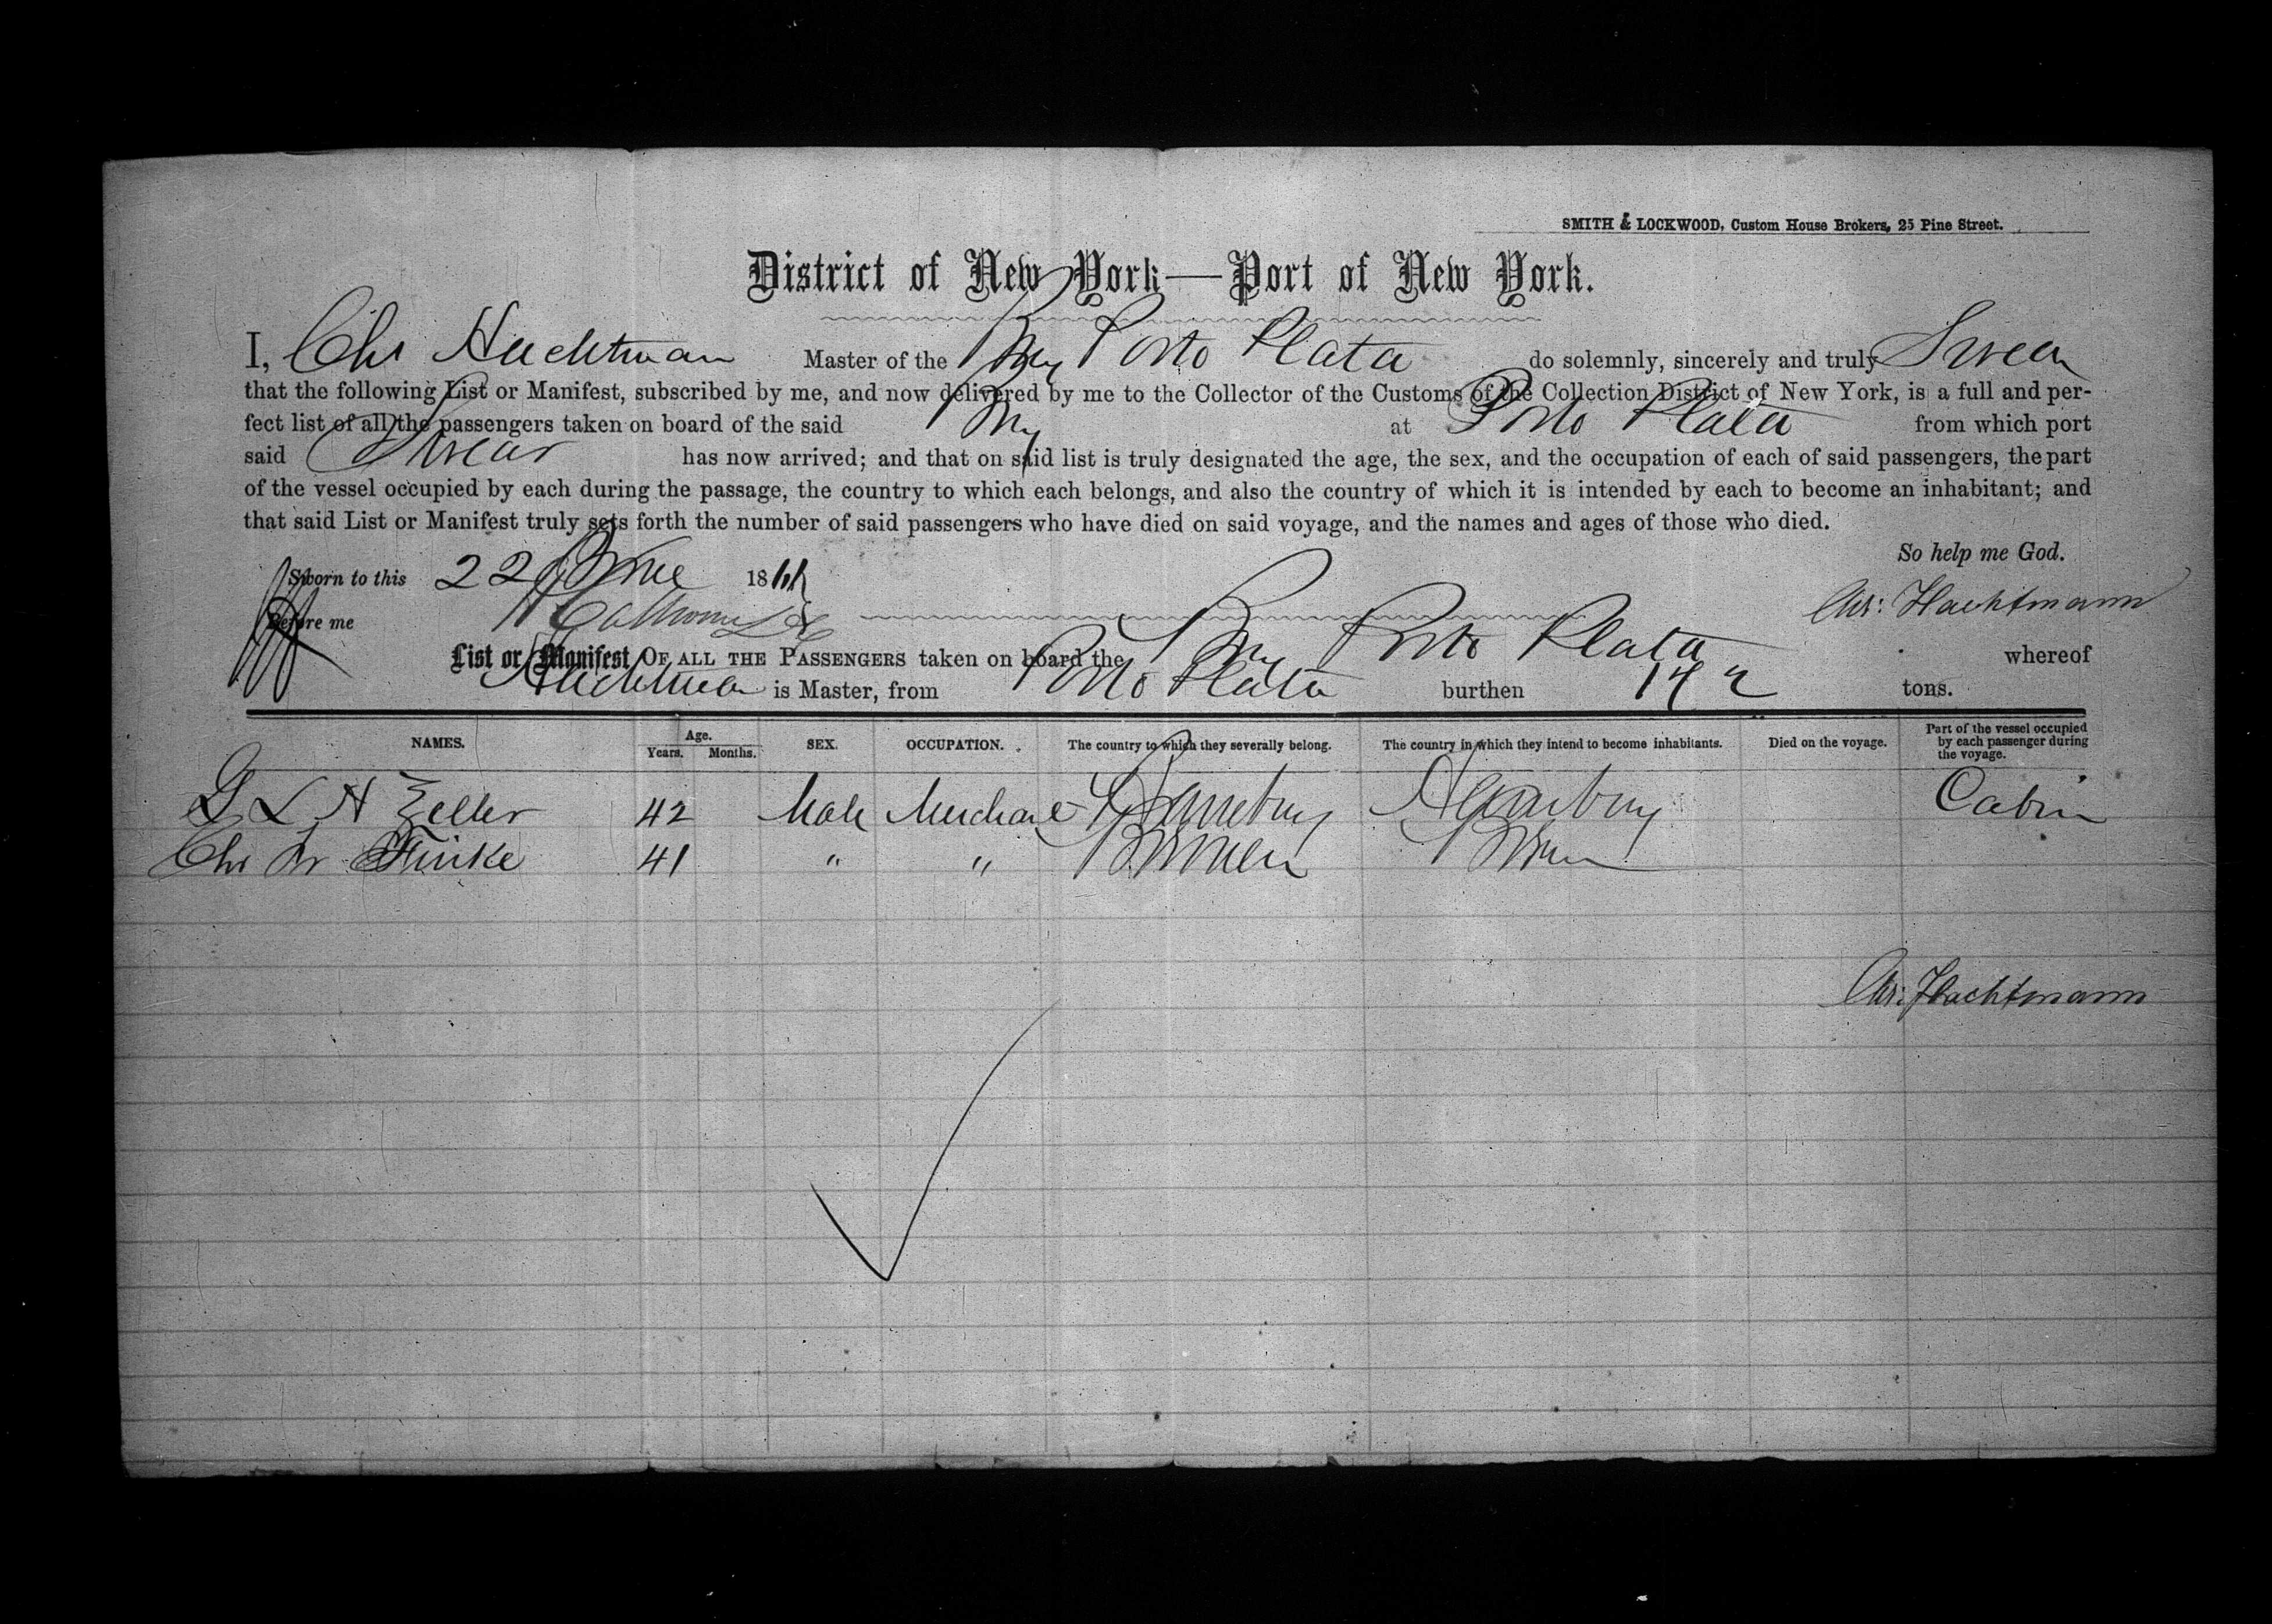 SMITH & LOCKWOOD, Custom House Brokers, 25 Pine Street.
District of New York—Port of New York.
I, Chr Hachtman Master of the Brig Porto Plata do solemnly, sincerely and truly Swear
that the following List or Manifest, subscribed by me, and now delivered by me to the Collector of the Customs of the Collection District of New York, is a full and per-
fect list of all the passengers taken on board of the said Brig at Porto Plata from which port
said has now arrived; and that on said list is truly designated the age, the sex, and the occupation of each of said passengers, the part
of the vessel occupied by each during the passage, the country to which each belongs, and also the country of which it is intended by each to become an inhabitant; and
that said List or Manifest truly sets forth the number of said passengers who have died on said voyage, and the names and ages of those who died.
So help me God.
Sworn to this 22 June 1866
Chr: Hachtmann
Before me
List or Manifest OF ALL THE PASSENGERS taken on board the Brig Porto Plata whereof
Hachtman is Master, from Porto Plata burthen tons.
NAMES. Age. Years. Months. SEX. OCCUPATION. The country to which they severally belong. The country in which they intend to become inhabitants. Died on the voyage. Part of the vessel occupied by each passenger during the voyage.
G L H Zeller 42 Male Merchant Hamburg Hamburg Cabin
Chr Fr Finke 41 " " Bremen Bremen
Chr: Hachtmann